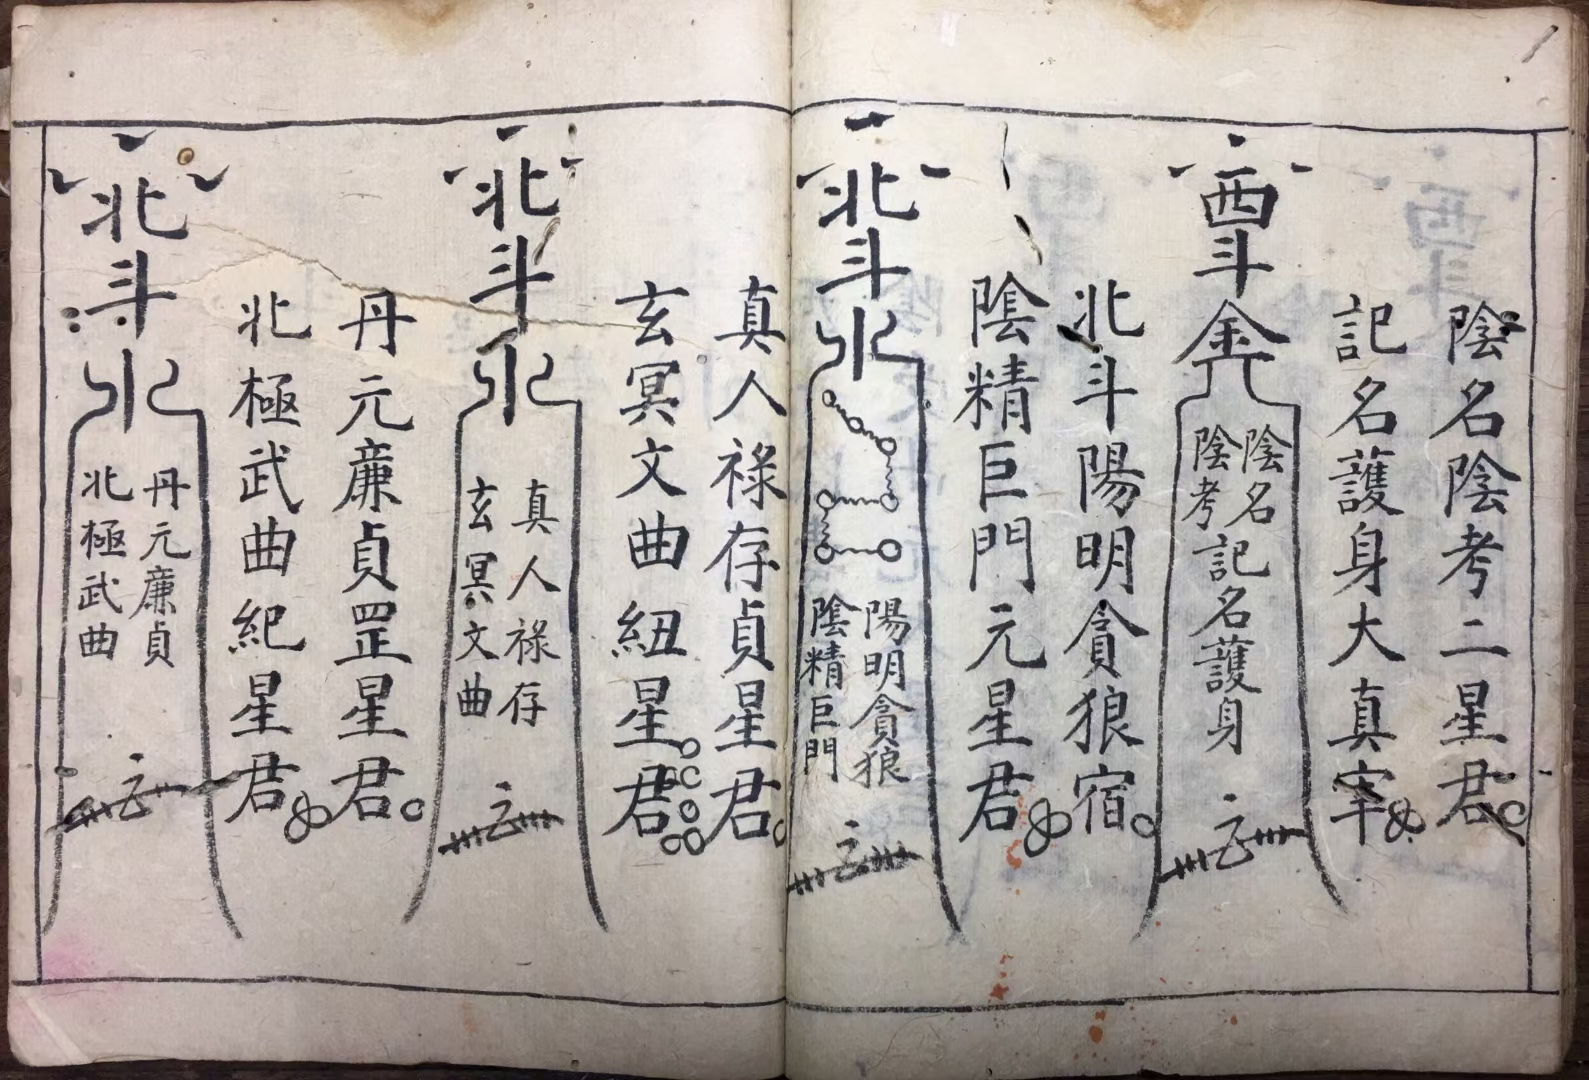 陰名陰考二星君
記名護身大真宰
西斗金
陰名
陰考
記名護身
北斗陽明貪狼宿
陰精巨門元星君
北斗水
陽明貪狼
陰精巨門
真人祿存貞星君
玄冥文曲紐星君
北斗水
真人祿存
玄冥文曲
丹元廉貞罡星君
北極武曲紀星君
北斗水
丹元廉貞
北極武曲